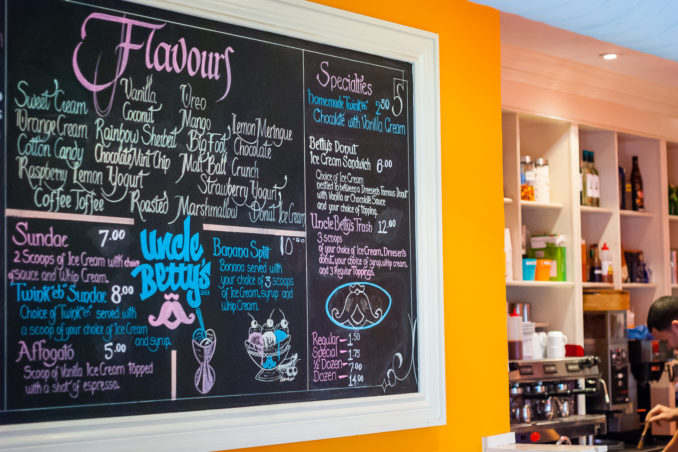 Flavours
Sweet Cream
Orange Cream
Cotton Candy
Raspberry Lemon Yogurt
Coffee Toffee
Vanilla
Coconut
Rainbow Sherbet
Chocolate Mint Chip
Roasted Marshmallow
Oreo
Mango
Big Foot
Malt Ball Crunch
Strawberry Yogurt
Lemon Meringue
Chocolate
Donut Ice Cream
Sundae 7.00
2 Scoops of Ice Cream with choice
of sauce and Whip Cream.
"Twink'eh" Sundae 8.00
Choice of Twink'eh served with
a scoop of your choice of Ice Cream
and syrup.
Affogato 5.00
Scoop of Vanilla Ice Cream topped
with a shot of espresso.
Uncle
Betty's
Banana Split 10.00
Banana served with
your choice of 3 scoops
of Ice Cream, syrup and
whip Cream.
Specialties
Homemade Twink'eh 2.50
Chocolate with Vanilla Cream
Betty's Donut
Ice Cream Sandwich 6.00
Choice of Ice Cream
nestled in between a Dreesen's Famous Donut
with Vanilla or Chocolate Sauce
and your choice of topping.
Uncle Betty's Trash 12.00
3 scoops
of your choice of Ice Cream, Dreesen's
donut, your choice of syrup, whip cream,
and 3 Regular Toppings.
Regular 1.50
Special 1.75
½ Dozen 7.00
Dozen 14.00